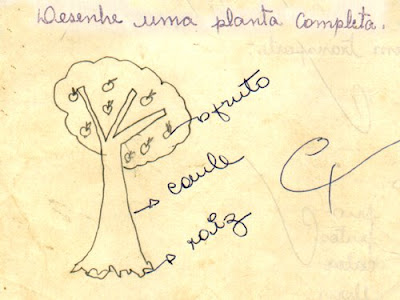 Desenhe uma planta completa.
fruto
caule
raiz